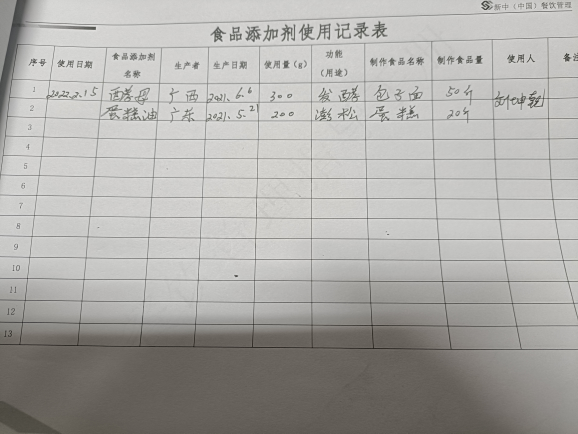 新中（中国）餐饮管理
食品添加剂使用记录表
序号 使用日期 食品添加剂名称 生产者 生产日期 使用量（g） 功能（用途） 制作食品名称 制作食品量 使用人 备注
1 2022.2.15 酒酵母 广西 2021.6.6 300 发酵 包子面 50斤
2 蛋糕油 广东 2021.5.21 200 澎松 蛋糕 20斤
3
4
5
6
7
8
9
10
11
12
13